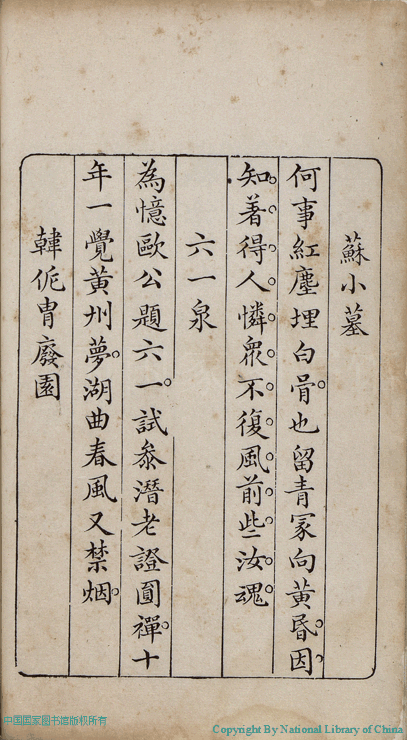 蘇小墓
何事紅塵埋白骨也留青冢向黃昏因
知著得人憐衆不復風前些汝魂
六一泉
為憶歐公題六一試叅潛老證圓禪十
年一覺黃州夢湖曲春風又禁烟
韓侂胄廢園
中国国家图书馆版权所有
Copyright By National Library of China